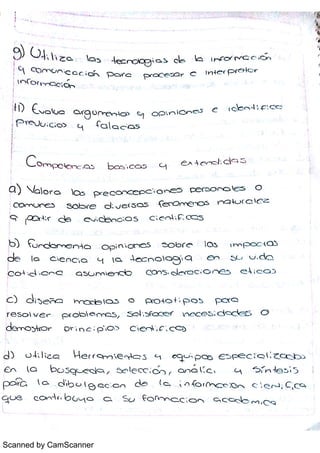 g) Utiliza las tecnologias de la información
y comunicación para procesar e interpretar
información
h) Evalua argumentos y opiniones e identifica
prejuicios y falacias
Competencias basicas y extendidas
a) Valora las preconcepciones personales o
comunes sobre diversos fenomenos naturales
a partir de evidencias cientificas
b) fundamenta opiniones sobre los impactos
de la ciencia y la tecnologia en su vida
cotidiana asumiendo consideraciones eticas
c) diseña modelos o prototipos para
resolver problemas, satisfacer necesidades o
demostrar principios cientificos
d) utiliza Herramientas y equipos especializados
en la busqueda, seleccion, analisis y sintesis
para la dibulgacion de la informacion cientifica
que contribuya a su formacion academica
Scanned by CamScanner